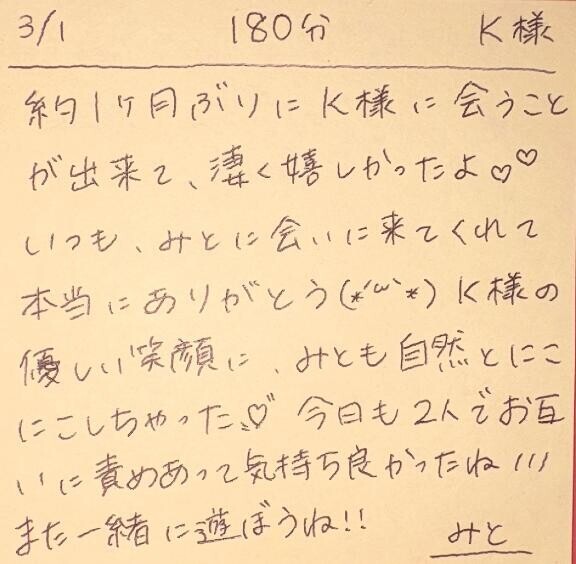 3/1 180分 K様
約1ヶ月ぶりにK様に会うこと
が出来て、凄く嬉しかったよ♡♡
いつも、みとに会いに来てくれて
本当にありがとう(*´ω`*) K様の
優しい笑顔に、みとも自然とにこ
にこしちゃった♡ 今日も2人でお互
いに責めあって気持ち良かったね!!!
また一緒に遊ぼうね!!
みと